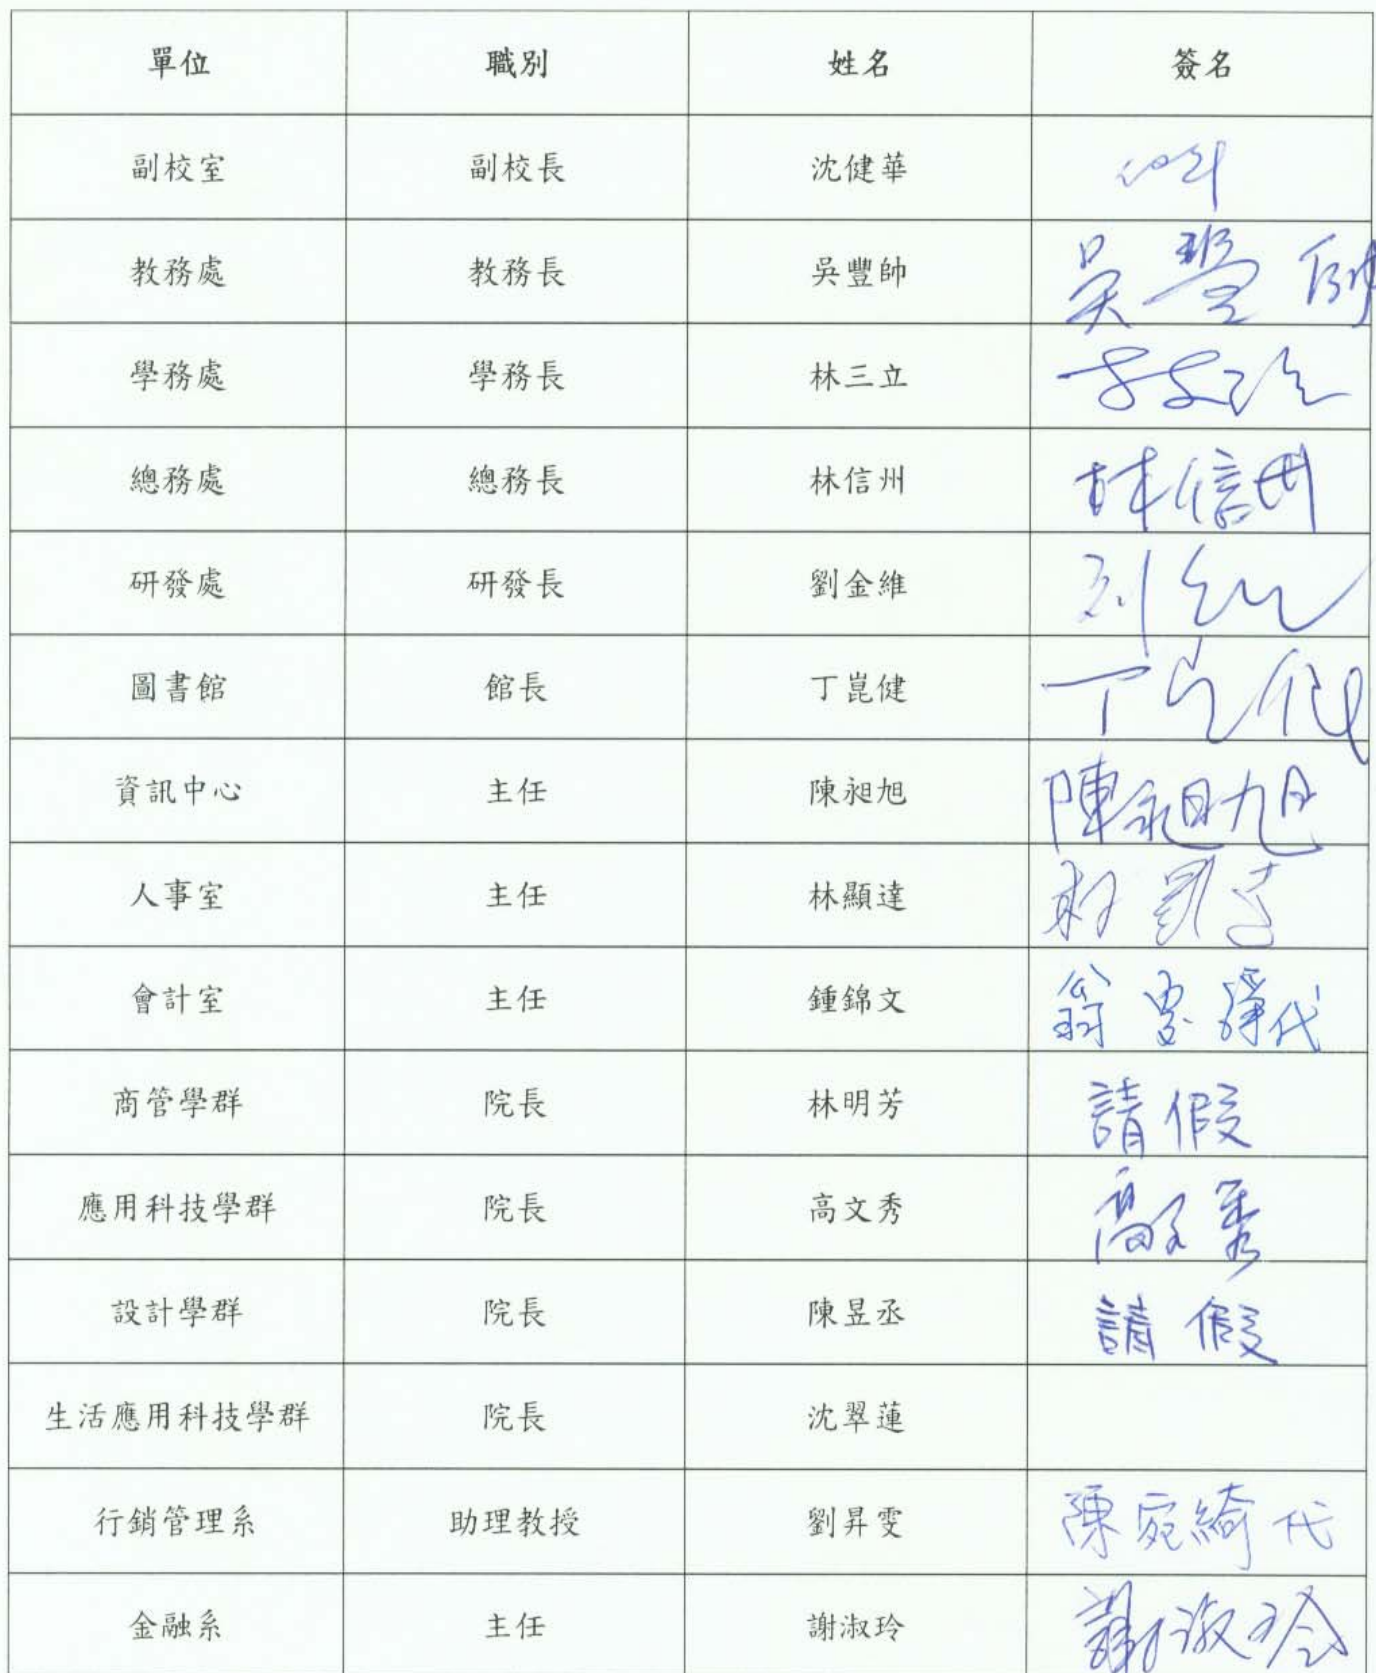 單位 職別 姓名 簽名
副校室 副校長 沈健華
教務處 教務長 吳豐帥 吳豐帥
學務處 學務長 林三立
總務處 總務長 林信州 林信州
研發處 研發長 劉金維
圖書館 館長 丁崑健 丁崑健
資訊中心 主任 陳昶旭 陳昶旭
人事室 主任 林顯達 林顯達
會計室 主任 鍾錦文 代
商管學群 院長 林明芳 請假
應用科技學群 院長 高文秀 高文秀
設計學群 院長 陳昱丞 請假
生活應用科技學群 院長 沈翠蓮
行銷管理系 助理教授 劉昇雯 陳宛綺代
金融系 主任 謝淑玲 謝淑玲